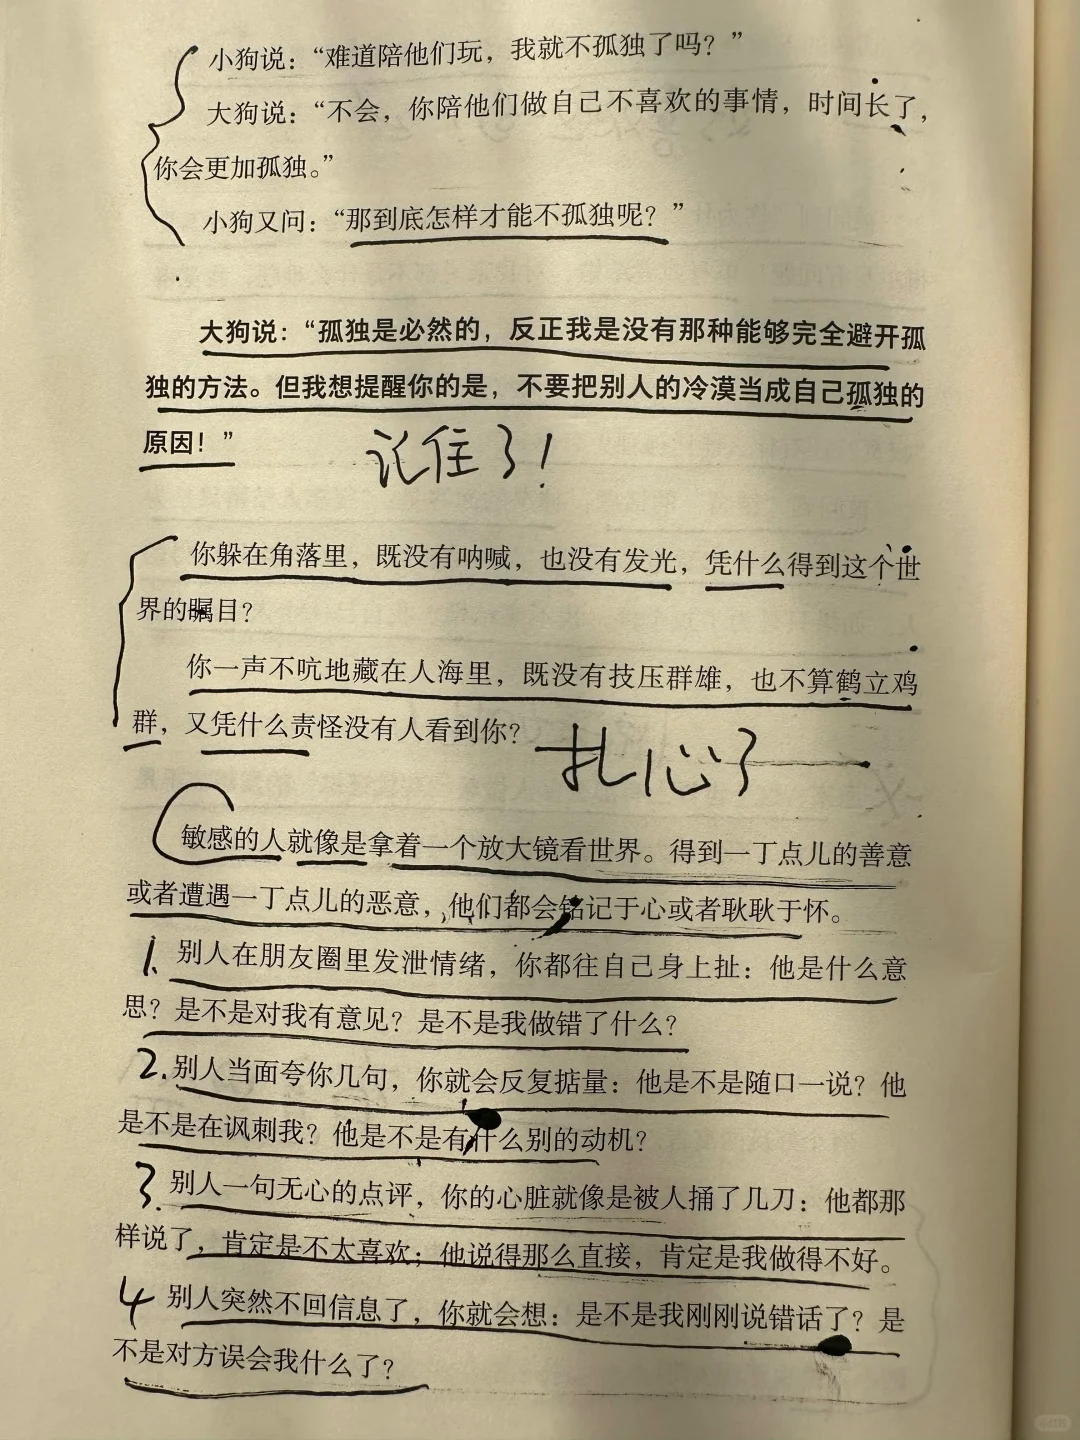 小狗说：“难道陪他们玩，我就不孤独了吗？”
大狗说：“不会，你陪他们做自己不喜欢的事情，时间长了，
你会更加孤独。”
小狗又问：“那到底怎样才能不孤独呢？”
大狗说：“孤独是必然的，反正我是没有那种能够完全避开孤
独的方法。但我想提醒你的是，不要把别人的冷漠当成自己孤独的
原因！”
记住了！
你躲在角落里，既没有呐喊，也没有发光，凭什么得到这个世
界的瞩目？
你一声不吭地藏在人海里，既没有技压群雄，也不算鹤立鸡
群，又凭什么责怪没有人看到你？
扎心了
敏感的人就像是拿着一个放大镜看世界。得到一丁点儿的善意
或者遭遇一丁点儿的恶意，他们都会铭记于心或者耿耿于怀。
1. 别人在朋友圈里发泄情绪，你都往自己身上扯：他是什么意
思？是不是对我有意见？是不是我做错了什么？
2. 别人当面夸你几句，你就会反复掂量：他是不是随口一说？他
是不是在讽刺我？他是不是有什么别的动机？
3. 别人一句无心的点评，你的心脏就像是被人捅了几刀：他都那
样说了，肯定是不太喜欢；他说得那么直接，肯定是我做得不好。
4 别人突然不回信息了，你就会想：是不是我刚刚说错话了？是
不是对方误会我什么了？